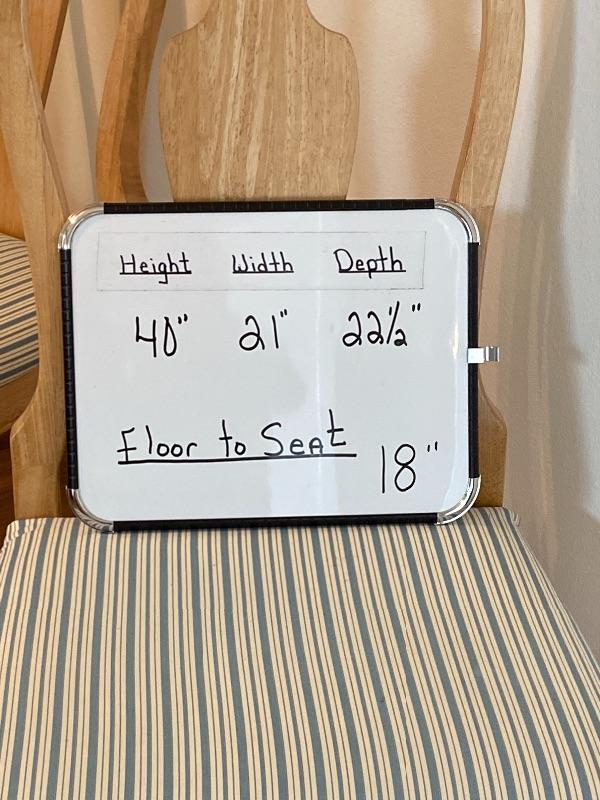 Height Width Depth
40" 21" 22½"
Floor to Seat 18"